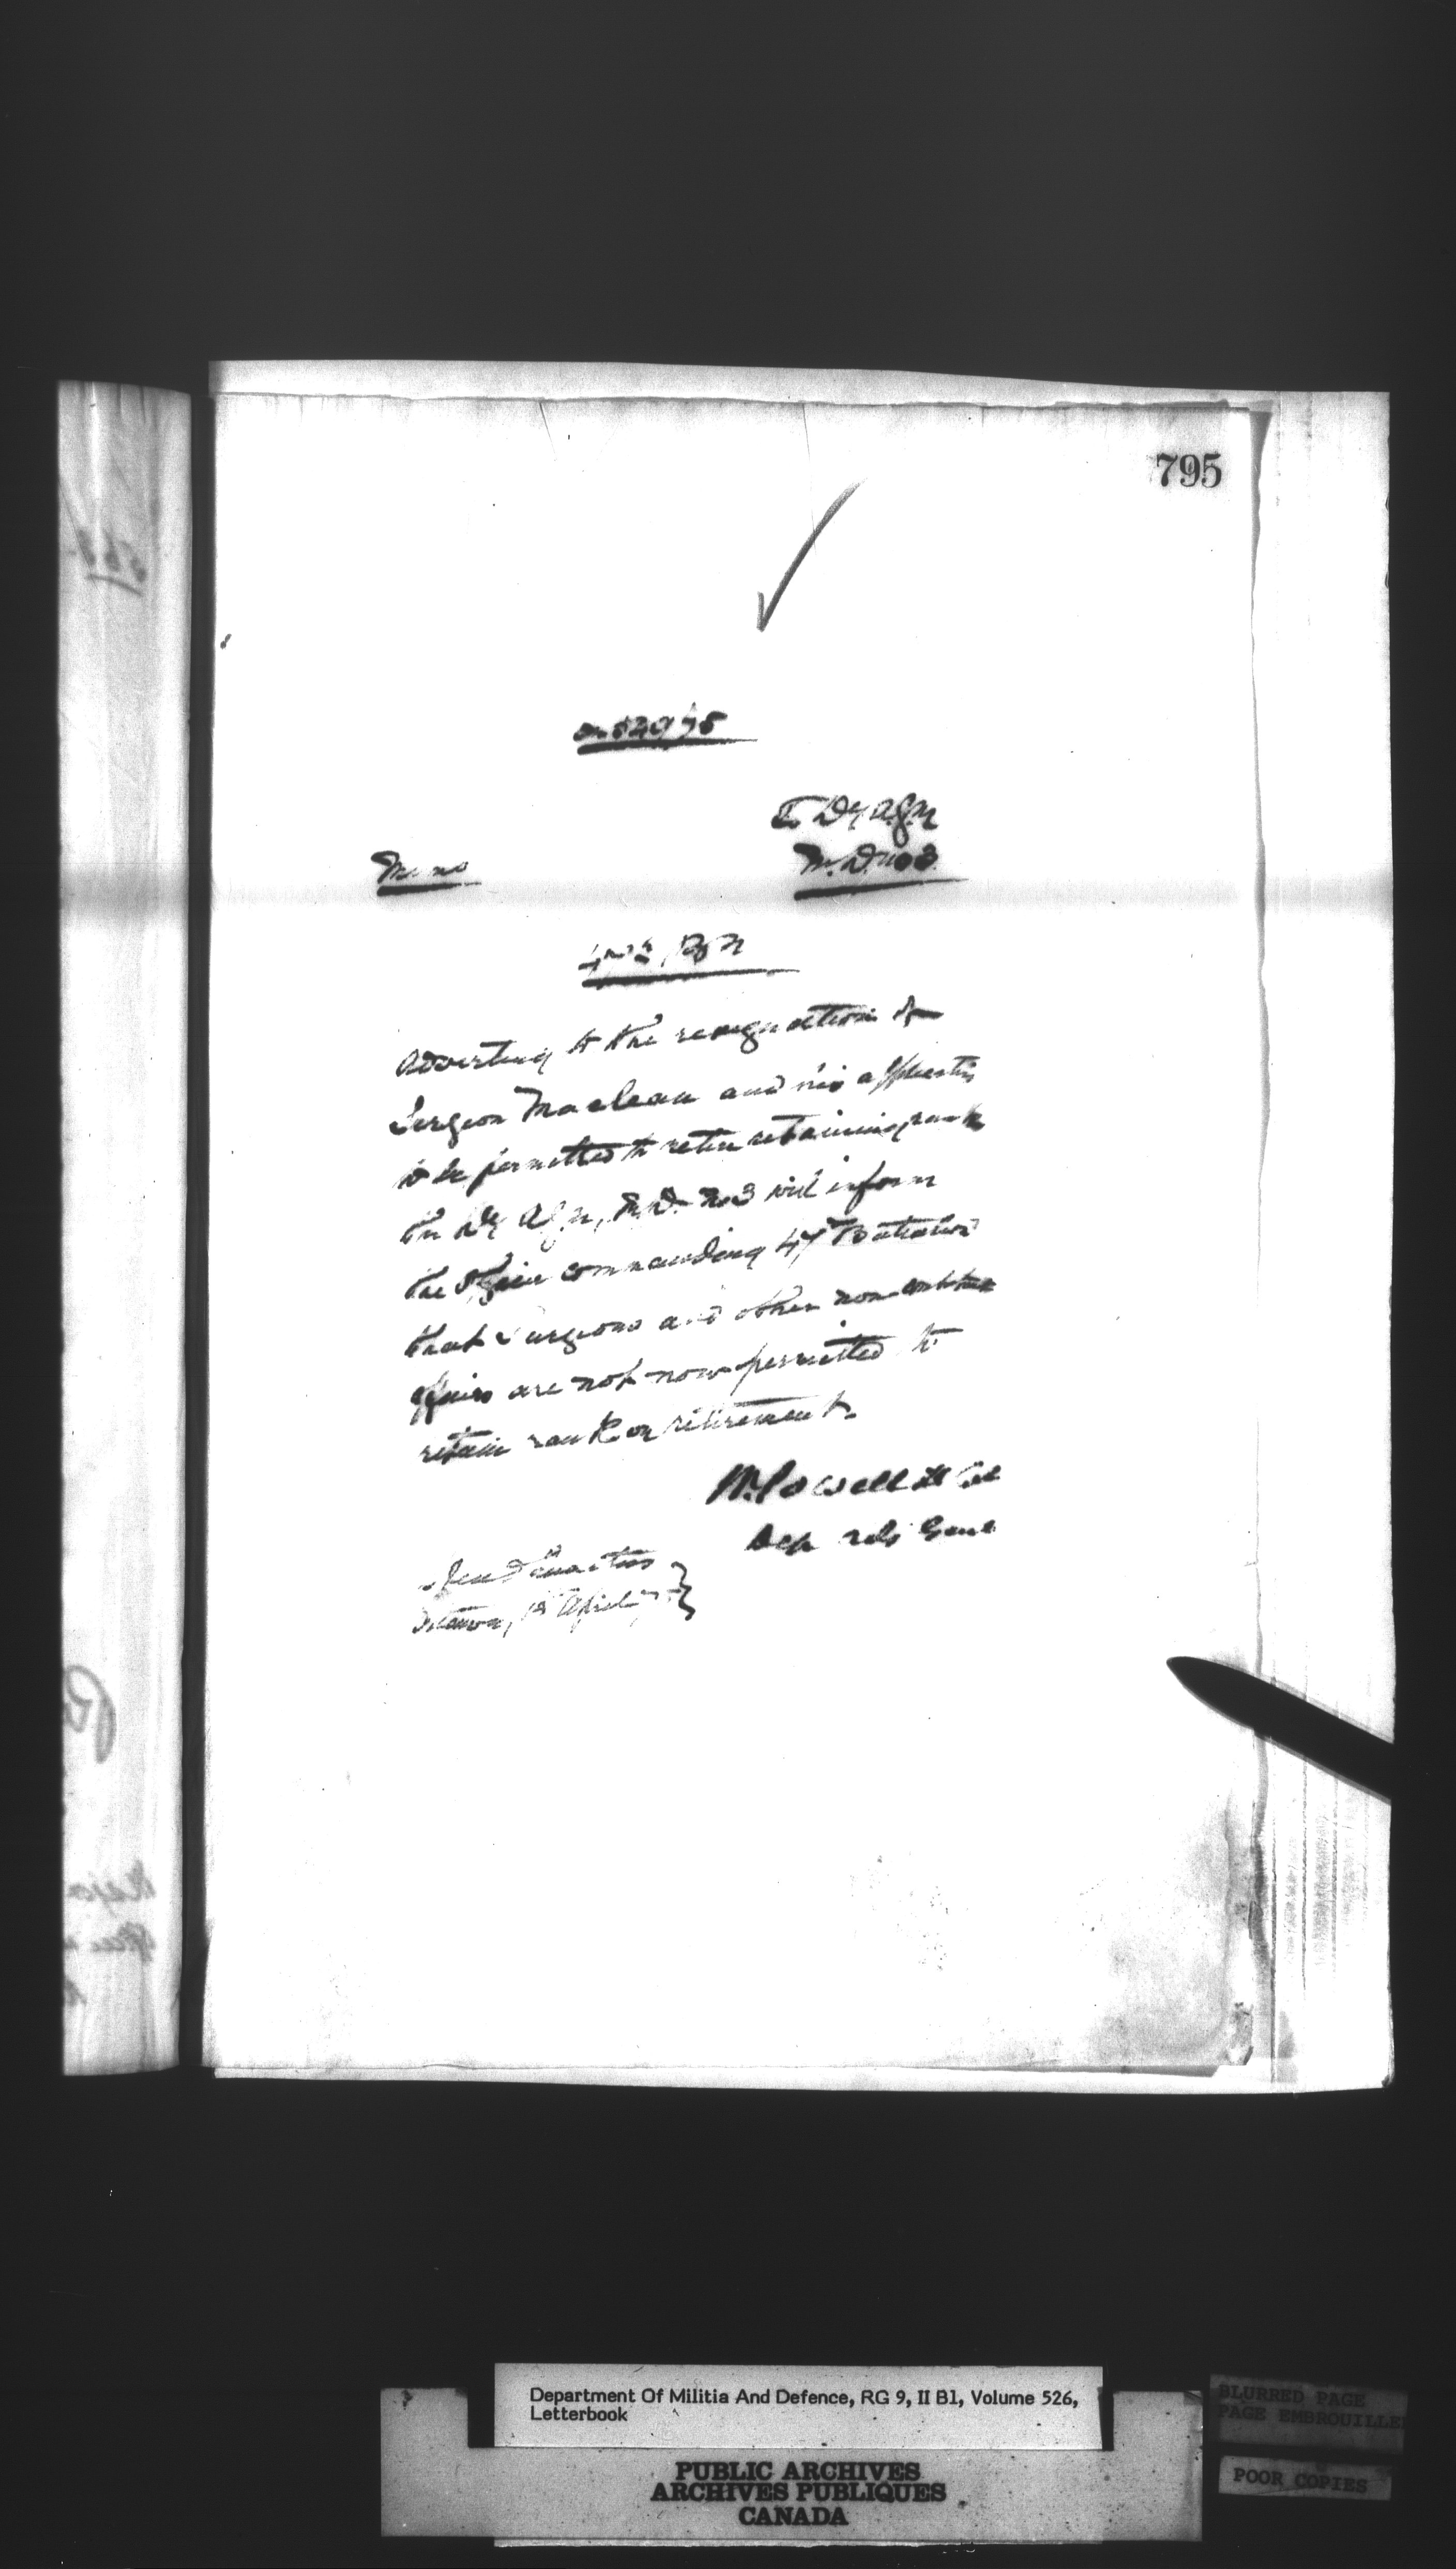 795
To Dy. A.G.M
M.D. No 3.
Memo
47th Bn
Adverting to the resignation of
Surgeon Maclean and his application
to be permitted to retire retaining rank
the Dy A.G.M, M.D. No 3 will inform
the Officer commanding 47 Battalion
that Surgeons and other non combatant
officers are not now permitted to
retain rank on retirement.
W. Powell Lt Col
Dep Adj Genl
Head Quarters
Ottawa, 1st April
Department Of Militia And Defence, RG 9, II B1, Volume 526,
Letterbook
BLURRED PAGE
PAGE EMBROUILLE
POOR COPIES
PUBLIC ARCHIVES
ARCHIVES PUBLIQUES
CANADA